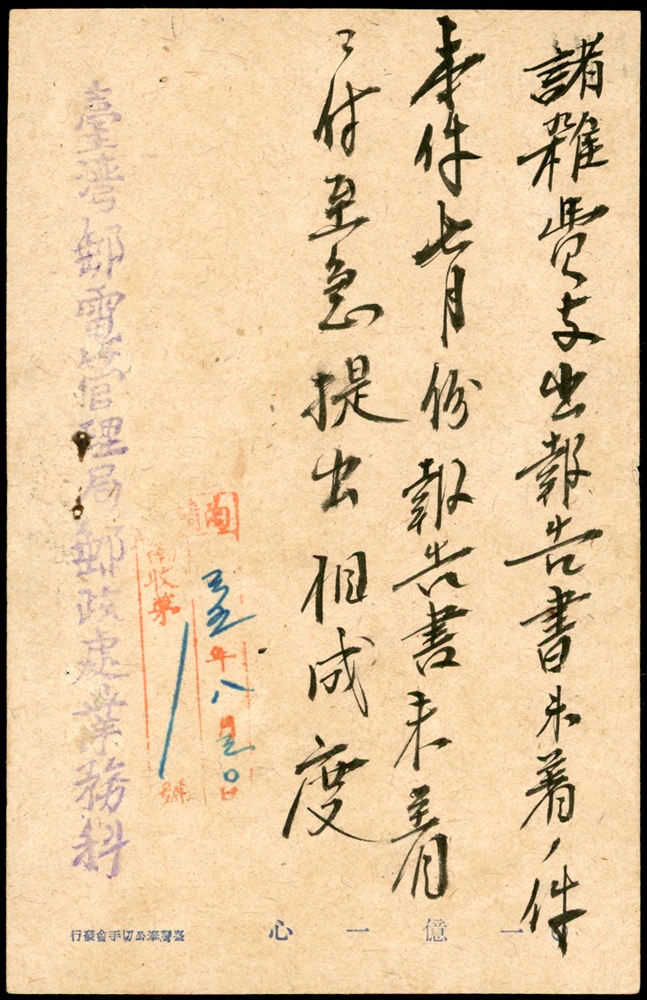 諸雑費支出報告書未着ノ件
本件七月份報告書未着
ニ付至急提出相成度
南收第
卅五年八月三〇日
號
臺灣郵電管理局郵政處業務科
一億一心
臺灣奉公切手會發行